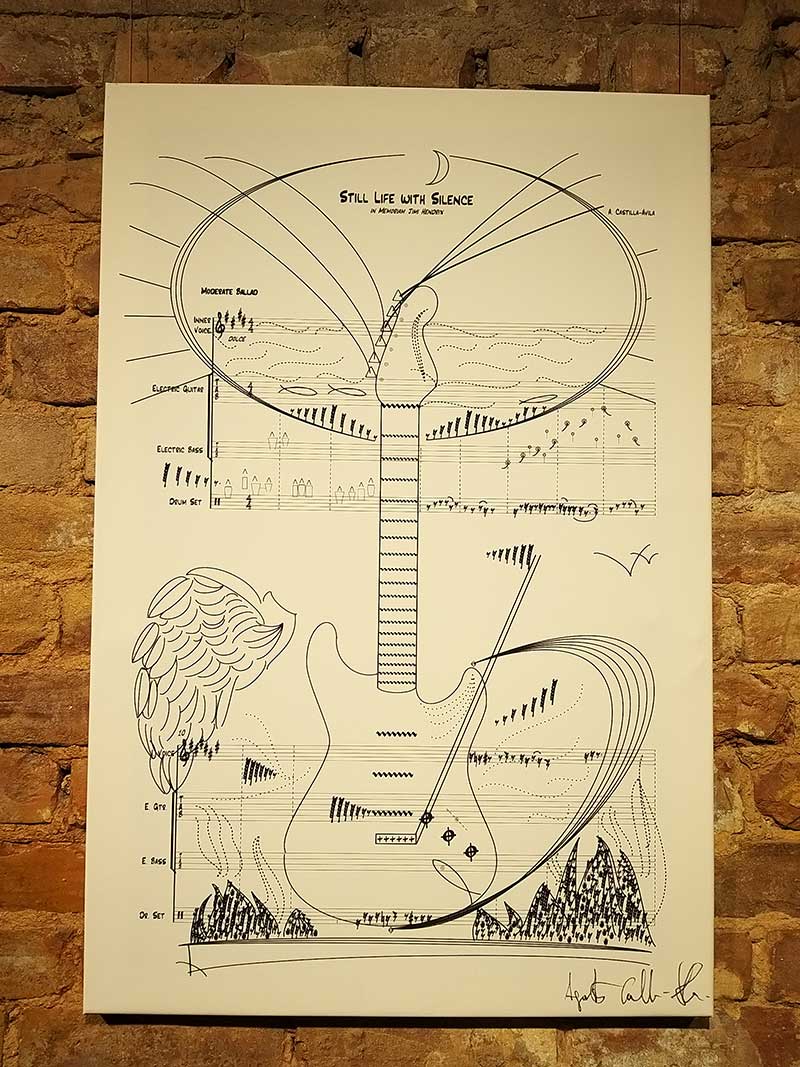 Still Life with Silence
in Memoriam Jimi Hendrix
A. Castilla-Ávila
Moderate Ballad
Inner
Voice
4
4
dolce
Electric Guitar
T
A
B
4
4
Electric Bass
Drum Set
4
4
10
Voice
E. Gtr.
T
A
B
E. Bass
Dr. Set